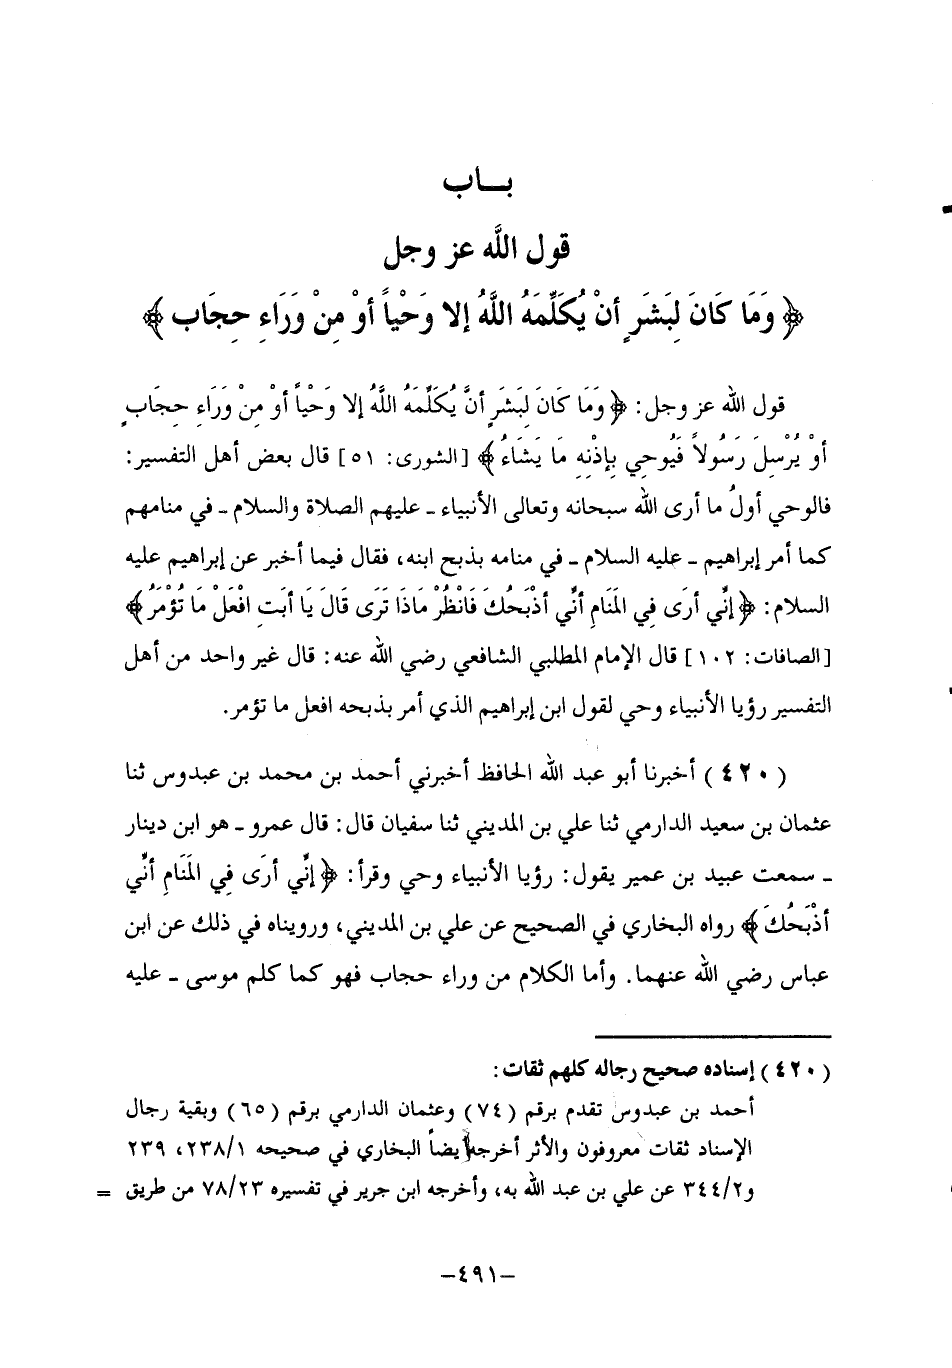 بـــاب
قول اللَّه عز وجل
﴿ وَمَا كَانَ لِبَشَرٍ أنْ يُكَلِّمَهُ اللَّهُ إلا وَحْياً أوْ مِنْ وَرَاءِ حِجَاب ﴾
قول الله عز وجل: ﴿ وَمَا كَانَ لِبَشَرٍ أنَّ يُكَلِّمَهُ اللَّهُ إلا وَحْياً أوْ مِنْ وَرَاءِ حِجَابٍ
أوْ يُرْسِلَ رَسُولاً فَيُوحِي بِإذْنِهِ مَا يَشَاءُ ﴾ [الشورى: ٥١] قال بعض أهل التفسير:
فالوحي أولُ ما أرى الله سبحانه وتعالى الأنبياء ـ عليهم الصلاة والسلام ـ في منامهم
كما أمر إبراهيم ـ عليه السلام ـ في منامه بذبح ابنه، فقال فيما أخبر عن إبراهيم عليه
السلام: ﴿ إنِّي أرَى فِي المَنَامِ أنِّي أذْبَحُكَ فَانْظُرْ مَاذَا تَرَى قَالَ يَا أبَتِ افْعَلْ مَا تُؤْمَرُ ﴾
[الصافات: ١٠٢] قال الإمام المطلبي الشافعي رضي الله عنه: قال غير واحد من أهل
التفسير رؤيا الأنبياء وحي لقول ابن إبراهيم الذي أمر بذبحه افعل ما تؤمر.
(٤٢٠) أخبرنا أبو عبد الله الحافظ أخبرني أحمد بن محمد بن عبدوس ثنا
عثمان بن سعيد الدارمي ثنا علي بن المديني ثنا سفيان قال: قال عمرو ـ هو ابن دينار
ـ سمعت عبيد بن عمير يقول: رؤيا الأنبياء وحي وقرأ: ﴿ إنِّي أرَى فِي المَنَامِ أنِّي
أذْبَحُكَ ﴾ رواه البخاري في الصحيح عن علي بن المديني، ورويناه في ذلك عن ابن
عباس رضي الله عنهما. وأما الكلام من وراء حجاب فهو كما كلم موسى ـ عليه
(٤٢٠) إسناده صحيح رجاله كلهم ثقات:
أحمد بن عبدوس تقدم برقم (٧٤) وعثمان الدارمي برقم (٦٥) وبقية رجال
الإسناد ثقات معروفون والأثر أخرجه أيضاً البخاري في صحيحه ٢٣٨/١، ٢٣٩
و٣٤٤/٢ عن علي بن عبد الله به، وأخرجه ابن جرير في تفسيره ٧٨/٢٣ من طريق =
-٤٩١-